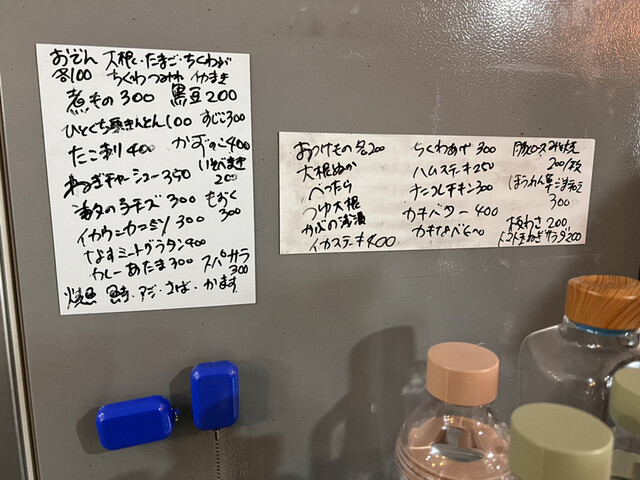 おでん 大根・たまご・ちくわぶ
各100 ちくわ つみれ イカまき
煮もの300 黒豆200
ひとくち栗きんとん100 すじこ300
たこ刺400 かずのこ400
ねぎチャーシュー350 いそべまき
200
チーズ300 もずく
300
イカウニカニミソ300
なすミートグラタン400
カレーあたま300 スパサラ
300
焼魚 アジ・さば・かます
おつけもの各200
大根ぬか
べったら
つゆ大根
かぶの浅漬
イカステーキ400
ちくわあげ300
ハムステーキ250
チキン300
カキバター400
カキ
豚ロースみそ焼
200/枚
ほうれん草ごま和え
300
板わさ200
トマト玉ねぎサラダ200